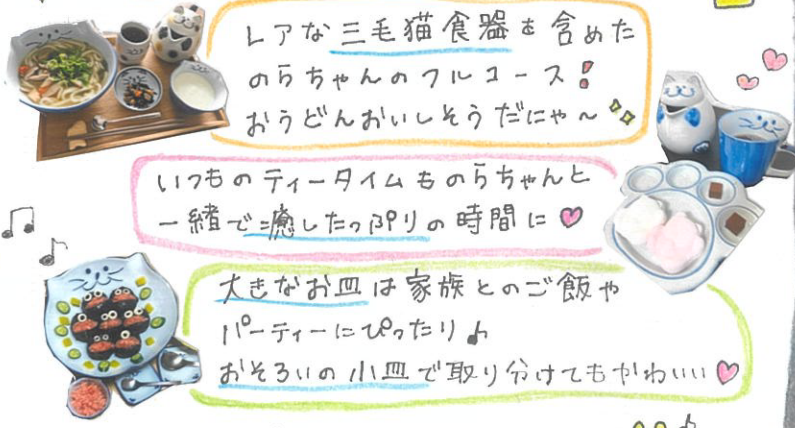 レアな三毛猫食器を含めた
のらちゃんのフルコース!
おうどんおいしそうだにゃ〜
いつものティータイムものらちゃんと
一緒で癒したっぷりの時間に♥
大きなお皿は家族とのご飯や
パーティーにぴったり♪
おそろいの小皿で取り分けてもかわいい♥